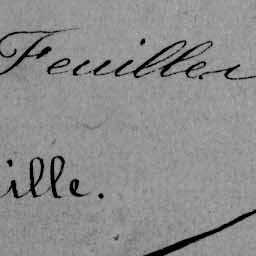 Feuilles
ille.